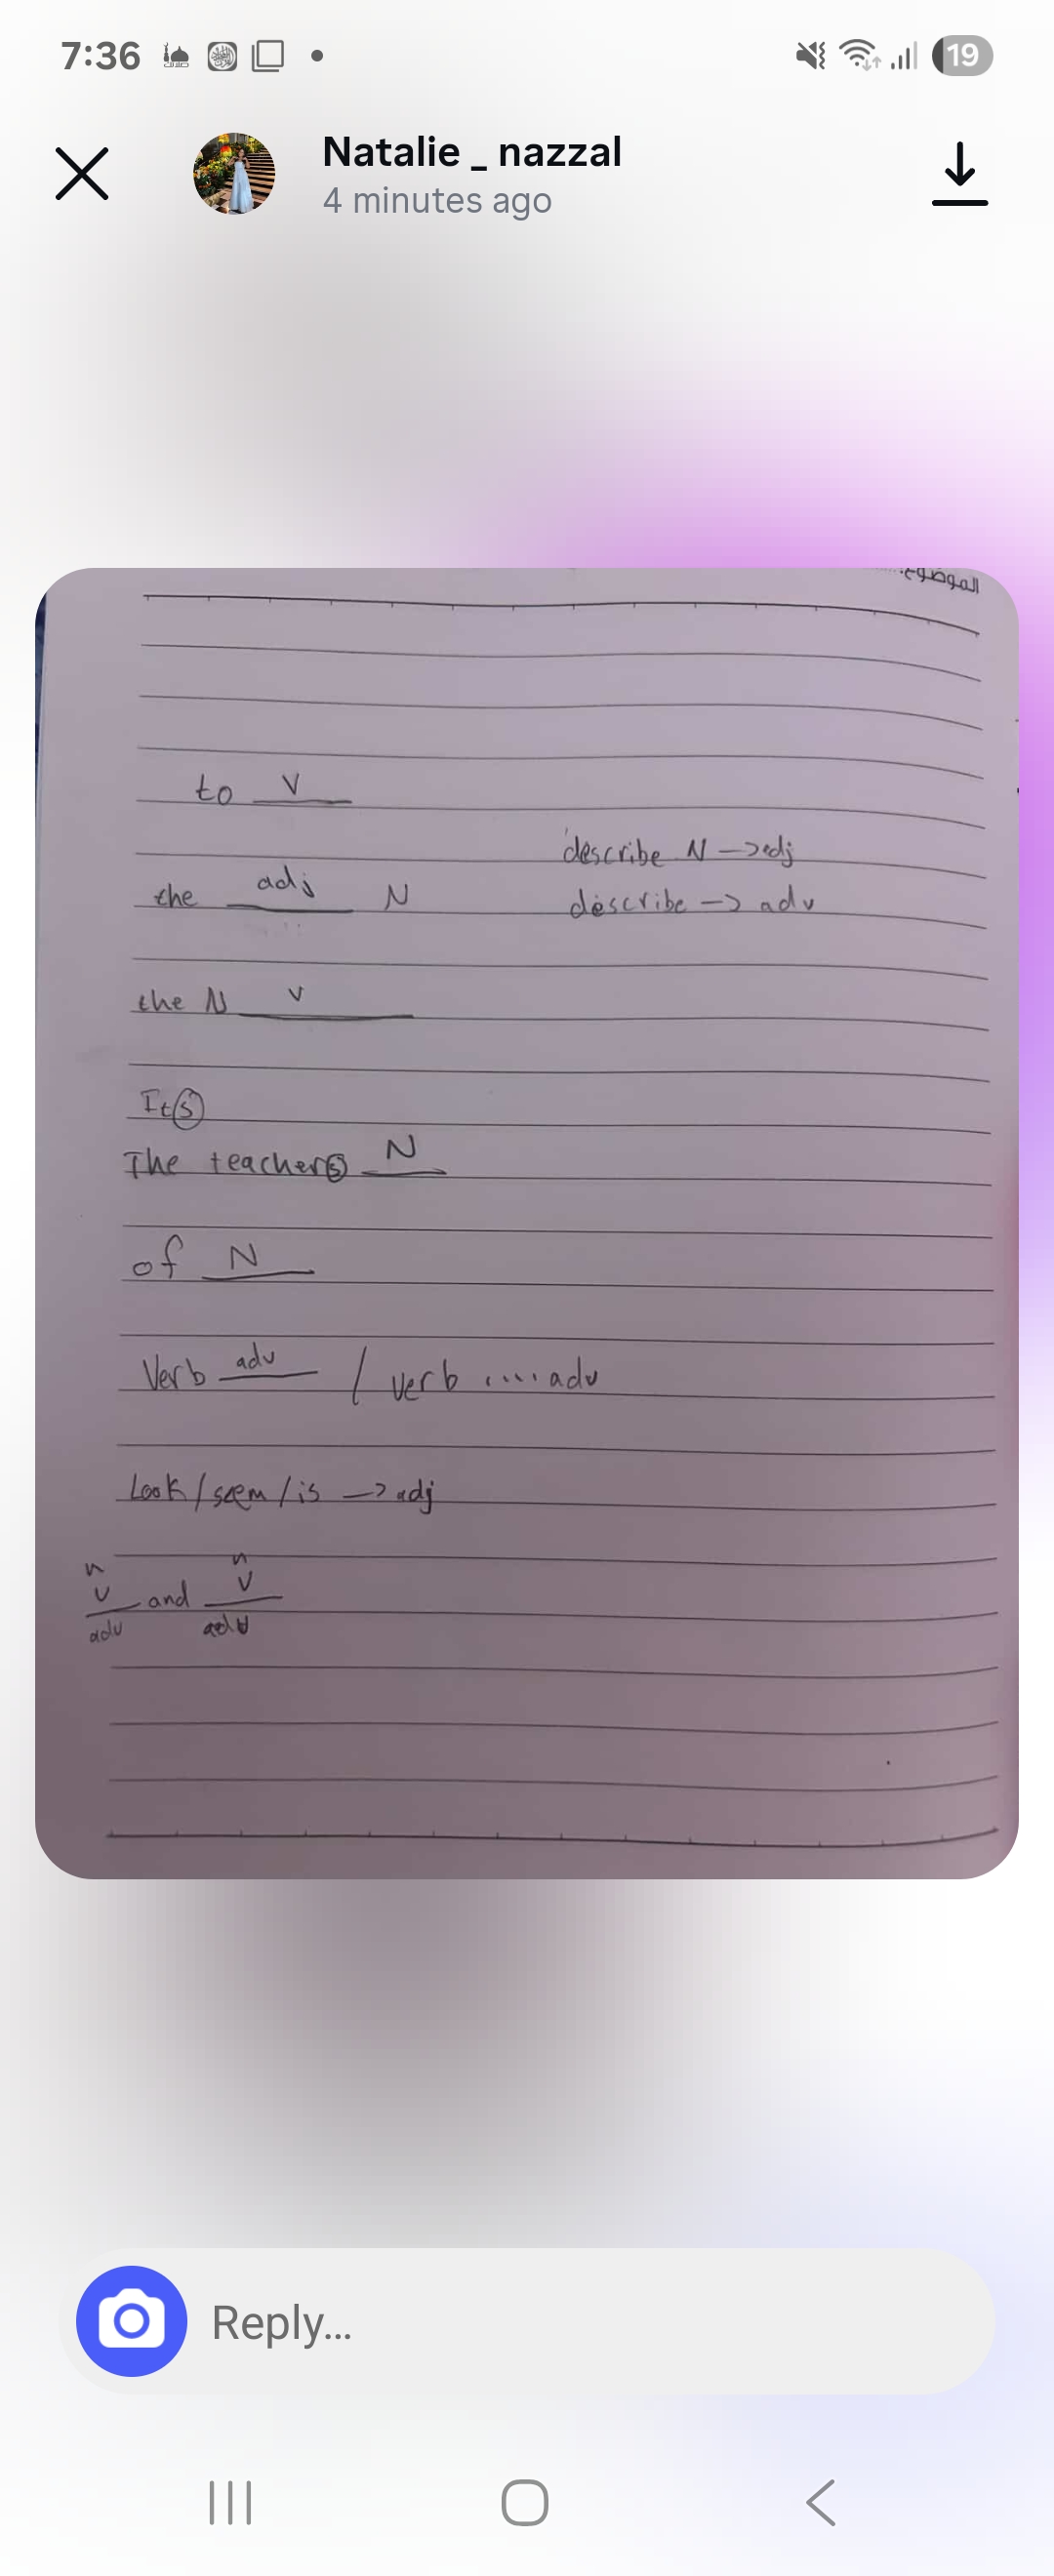 7:36
19
Natalie _ nazzal
4 minutes ago
الموضوع:
to v
describe N -> adj
the adj N
describe -> adv
the N v
It(s)
The teacher(s) N
of N
Verb adv / verb .... adv
Look/seem/is -> adj
n n
v and v
adv adv
Reply...